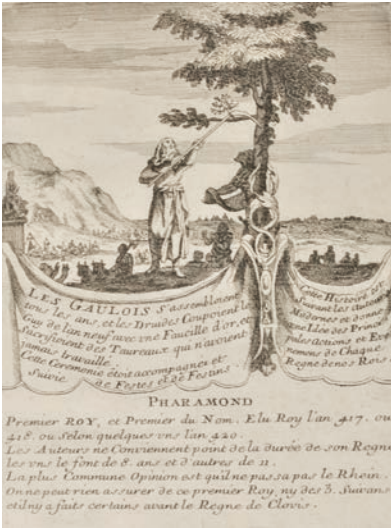 LES GAULOIS S'assembloient
tous les ans, et les Druides Coupoient le
Guy de l'an neuf avec une Faucille d'or, et
Sacrifioient des Taureaux qui n'avoient
jamais travaillé.
Cette Ceremonie étoit accompagnée et
Suivie de Festes et de Festins
Cette Histoire est
Suivant les Auteurs
Modernes et donne
une Idée des Princi
pales Actions et Eve
nemens de Chaque
Regne de nos Rois.
PHARAMOND
Premier ROY, et Premier du Nom, Elu Roy l'an 417, ou
418. ou Selon quelques vns l'an 420.
Les Auteurs ne Conviennent point de la durée de son Regne
les vns le font de 8. ans et d'autres de 11.
La plus Commune Opinion est qu'il ne passa pas le Rhein.
On ne peut rien assurer de ce premier Roy, ny des 3. Suivans
et il n'y a faits certains avant le Regne de Clovis.